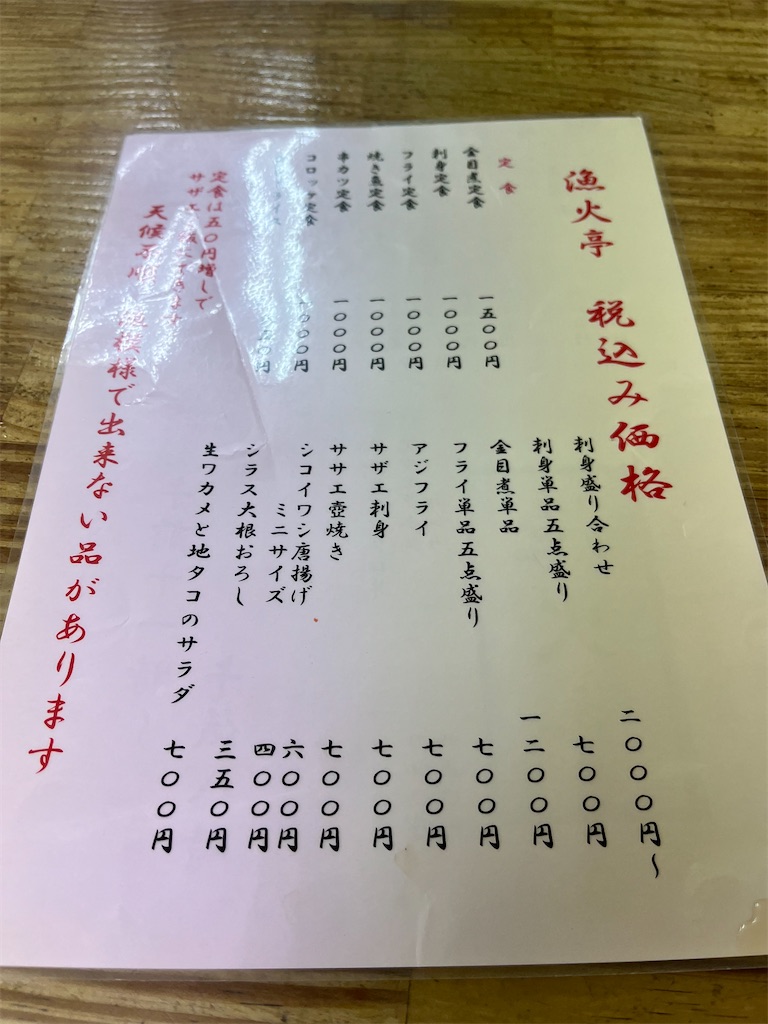 漁火亭 税込み価格
定食
金目煮定食 一五〇〇円
刺身定食 一〇〇〇円
フライ定食 一〇〇〇円
焼き魚定食 一〇〇〇円
串カツ定食 一〇〇〇円
コロッケ定食 一〇〇〇円
五〇円
刺身盛り合わせ 二〇〇〇円〜
刺身単品五点盛り 七〇〇円
金目煮単品 一二〇〇円
フライ単品五点盛り 七〇〇円
アジフライ 七〇〇円
サザエ刺身 七〇〇円
ササエ壺焼き 七〇〇円
シコイワシ唐揚げ 六〇〇円
ミニサイズ 四〇〇円
シラス大根おろし 三五〇円
生ワカメと地タコのサラダ 七〇〇円
定食は五〇円増しで
サザエ
天候不順 模様で出来ない品があります